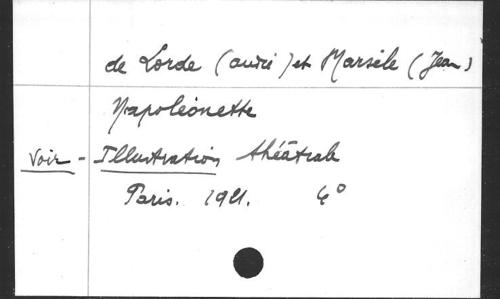 de Lorde (André) et Marsèle (Jean)
Napoléonette
Voir - Illustration théâtrale
Paris. 1921. 4°